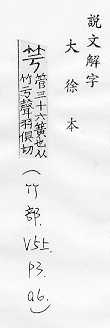 說文解字
大徐本
竽
管三十六簧也从
竹亏聲羽俱切
(竹部.V5上.P3.a6.)